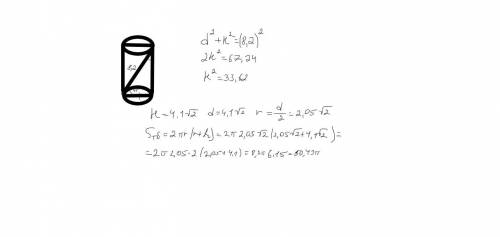 8,2
d²+H²=(8,2)²
2H²=67,24
H²=33,62
H=4,1√2 d=4,1√2 r=d/2=2,05√2
=2πr(r+h)=2π2,05√2(2,05√2+4,1√2)=
=2π2,05·2(2,05+4,1)=8,2π6,15=50,43π